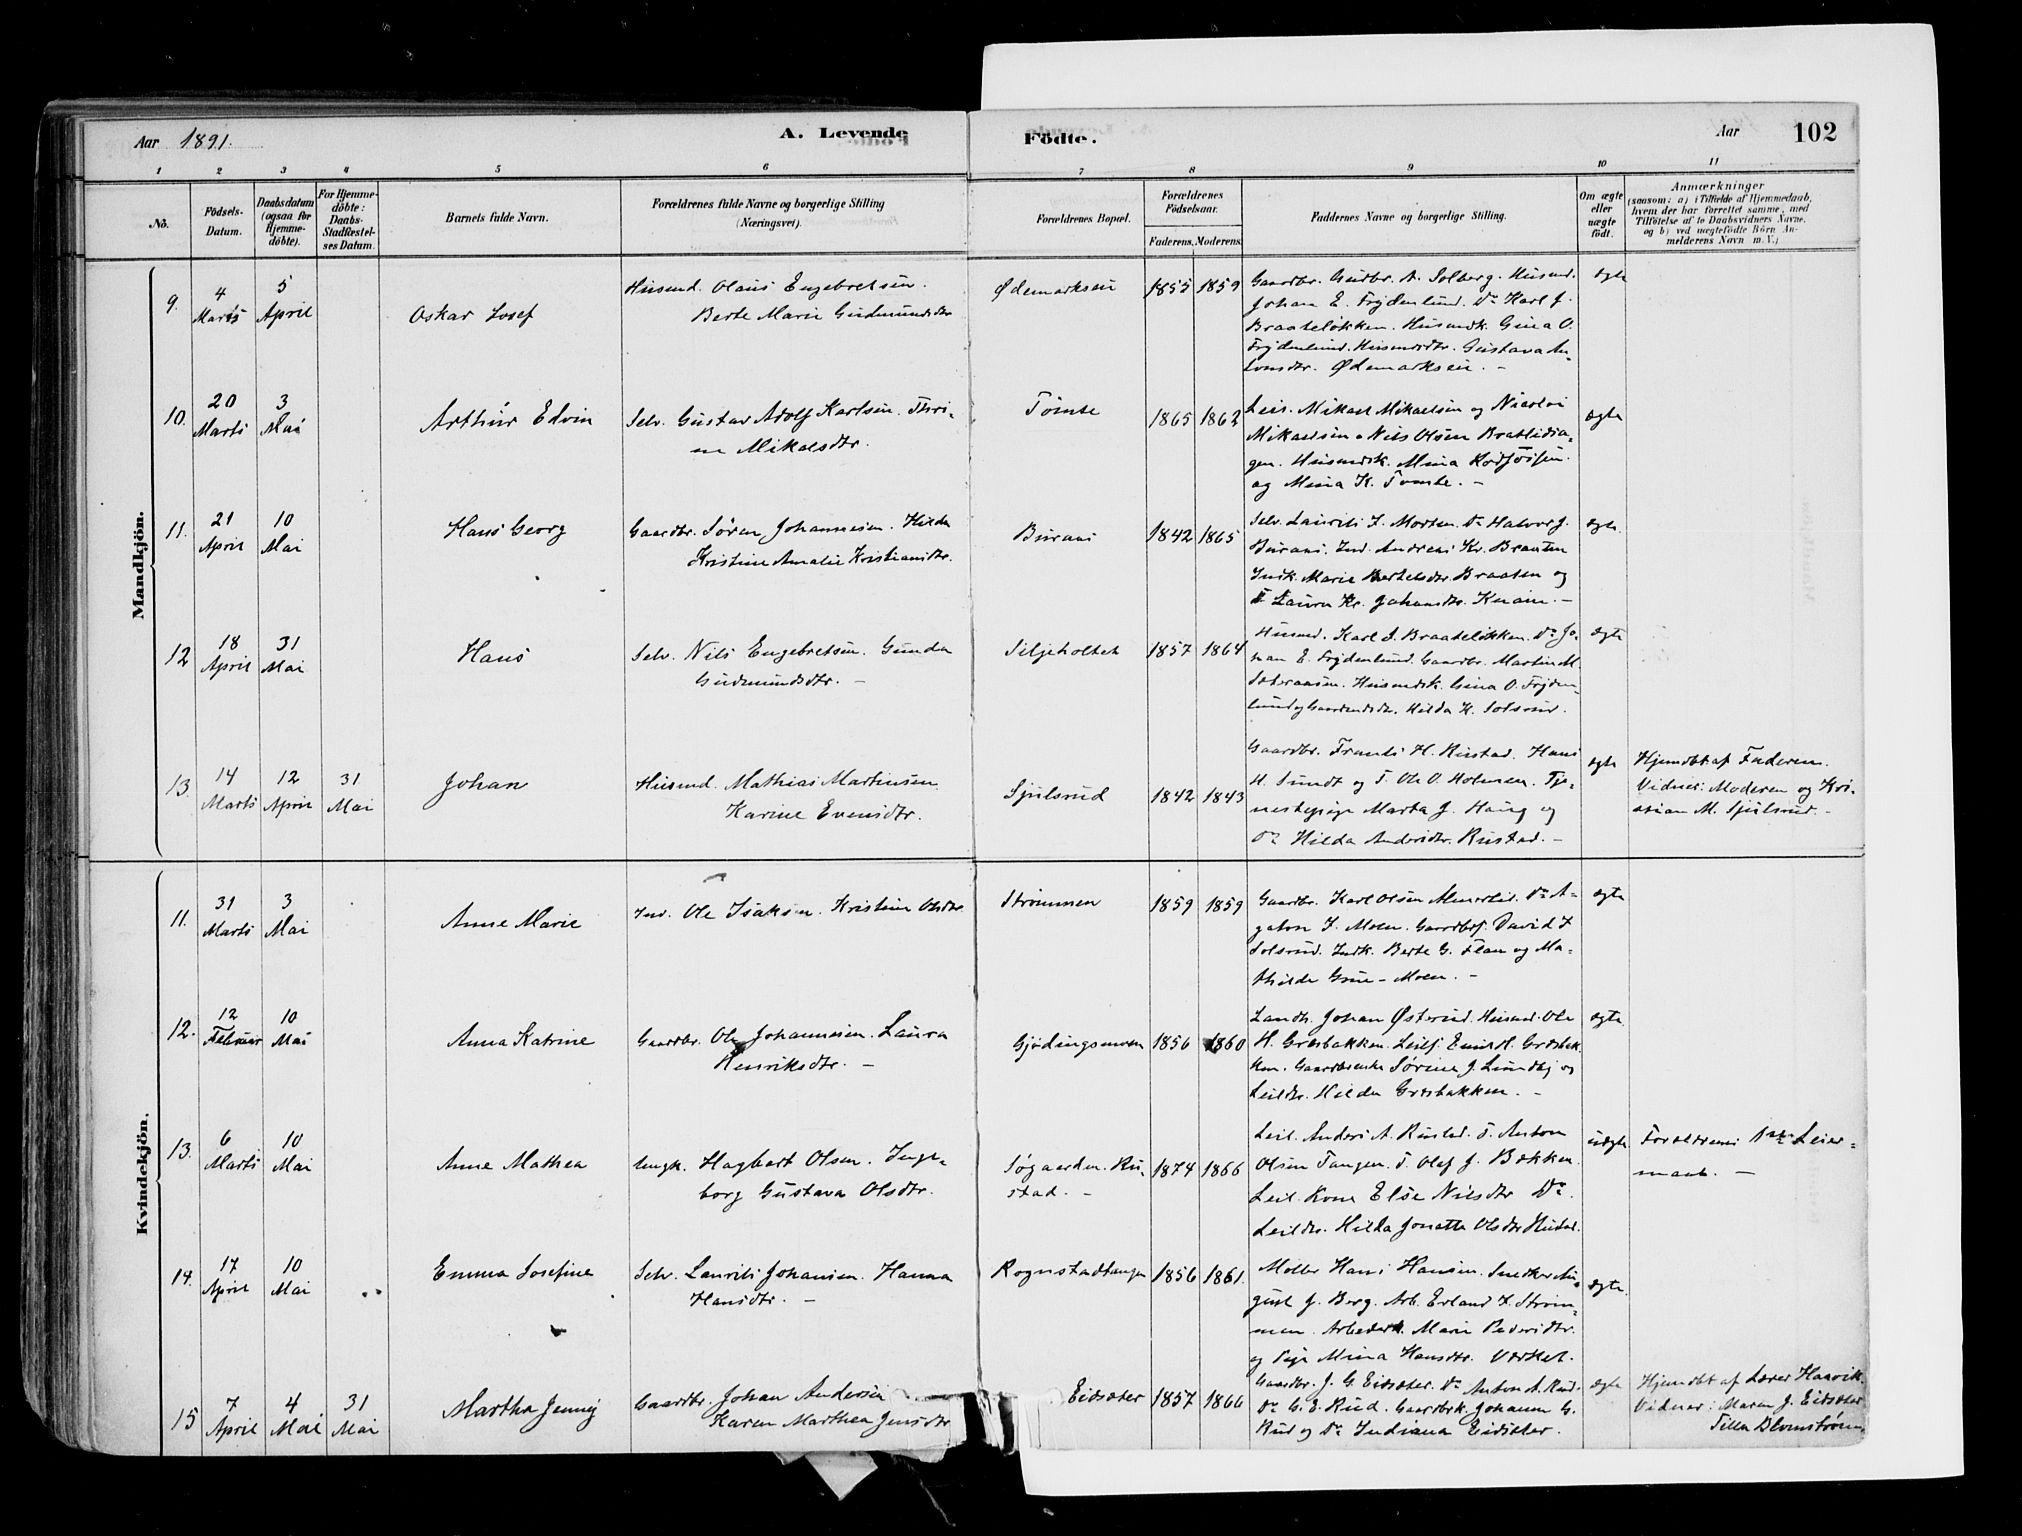 Aar 1891.
A. Levende
Födte.
Aar
102
1 2 3 4 5 6 7 8 9 10 11
No.
Födsels-
Datum.
Daabsdatum
(ogsaa for
Hjemme-
döbte).
For Hjemme-
döbte:
Daabs-
Stadfæstel-
ses Datum.
Barnets fulde Navn.
Forældrenes fulde Navne og borgerlige Stilling
(Næringsvei).
Forældrenes Bopæl.
Forældrenes
Födselsaar.
Faderens. Moderens.
Faddernes Navne og borgerlige Stilling.
Om ægte
eller
uægte
födt.
Anmærkninger
(saasom: a) i Tilfælde af Hjemmedaab,
hvem der har forrettet samme, med
Tilföielse af to Daabsvidners Navne.
og b) ved uægtefödte Börn An-
melderens Navn m. V.)
Mandkjön.
9. 4 Marts 5 April
Oskar Josef
Husmd. Olaus Engebretsen.
Berte Marie Gudmundsdtr
Ødemarkseie
1855 1859
Gaardbr. Gudbr. A. Solberg. Husmd.
Johan E. Frydenlund. Do Karl J.
Braateløkken. Husmdk. Gina O.
Frydenlund. Husmdsdtr. Gustava An-
tonsdtr. Ødemarkseie. -
ægte
10. 20 Marts 3 Mai
Arthur Edvin
Selv. Gustav Adolf Karlsen. Thri-
ne Mikalsdtr.
Tømte
1865 1862
Leil. Mikael Mikaelsen og Nicolai
Mikaelsen. Nils Olsen
Husmdsk. Mina
og Mina K. Tømte. -
ægte
11. 21 April 10 Mai
Hans Georg
Gaardbr. Søren Johannesen. Hilda
Kristine Amalie Kristiansdtr.
Buraas
1842 1865
Selv. Laurits J. Morten. Do Halvor J.
Buraas. Ind. Andreas Kr. Braaten
Indk. Marie Bertelsdtr. Braaten og
Laura Kr. Johansdtr. -
ægte
12 18 April 31 Mai
Hans
Selv. Nils Engebretsen. Gunda
Gudmundsdtr. -
Siljeholtet
1857 1864
Husmd. Karl J. Braateløkken. Do Jo-
han E. Frydenlund. Gaardbr. Martin M.
Husmdsk. Gina O. Fryden-
lund og Hilda K. Solsrud.
ægte
13. 14 Marts 12 April 31 Mai
Johan
Husmd. Mathias Martinsen
Karine Evensdtr.
Sjulsrud
1842 1843
Gaardbr. Frants H. Rustad. Hans
H. Sundt og T. Ole O. Holmen. Tje-
nestepige Marta J. Haug og
Do Hilda Andersdtr. Rustad. -
ægte
Hjemdbt af Faderen.
Vidner: Moderen og Kri-
stian M. Sjulsrud. -
Kvindekjön.
11. 31 Marts 3 Mai
Anne Marie
Ind. Ole Isaksen. Kristine Olsdtr
Strømmen
1859 1859
Gaardbr. Karl Olsen Do A-
gaton J. Moen. David J.
Solsrud. Indk. Berte G. Flan og Ma-
thilde Moen. -
ægte
12. 12 Februar 10 Mai
Anna Katrine
Gaardbr. Ole Johannesen. Laura
Henriksdtr. -
Gjødingsmoen
1856 1860
Landh. Johan Østerud. Husmd. Ole
H. Græsbakken. Emil H. Græsbak-
ken. Sørine J. Lundby og
Leildtr. Hilda Græsbakken. -
ægte
13. 6 Marts 10 Mai
Anne Mathea
Ungk. Hagbart Olsen. Inge-
borg Gustava Olsdtr.
Søgaarden. Ru-
stad. -
1874 1866
Leil. Anders A. Rustad. T. Anton
Olsen Tangen. T. Olaf J. Bakken.
Leil. Kone Else Nilsdtr Do.
Leildtr. Hilda Jonette Olsdtr
uægte
Forældrenes 1ste Leier-
maal. -
14. 17 April 10 Mai
Emma Josefine
Selv. Laurits Johansen. Hanna
Hansdtr. -
Rognstadtangen
1856 1861.
Møller Hans Hansen. Snedker Au-
gust J. Berg. Arb. Erland J. Strøm-
men. Arbeiderk. Marie Pedersdtr.
og Pige Mina Hansdtr. Værket.
ægte.
15 7 April 4 Mai 31 Mai
Martha Jenny
Gaardbr. Johan Andersen
Karen Marthea Jensdtr
Eidsæter
1857 1866
Gaardbr. J. G. Eidsæter. Do Anton A. Rud.
Do G. E. Rud. Gaardbrk. Johanne G.
Rud og Do Indiana Eidsæter.
ægte
Hjemdbt af Lærer Haavik.
Vidner: Maren J. Eidsæter
Tilla Blomstrøm.